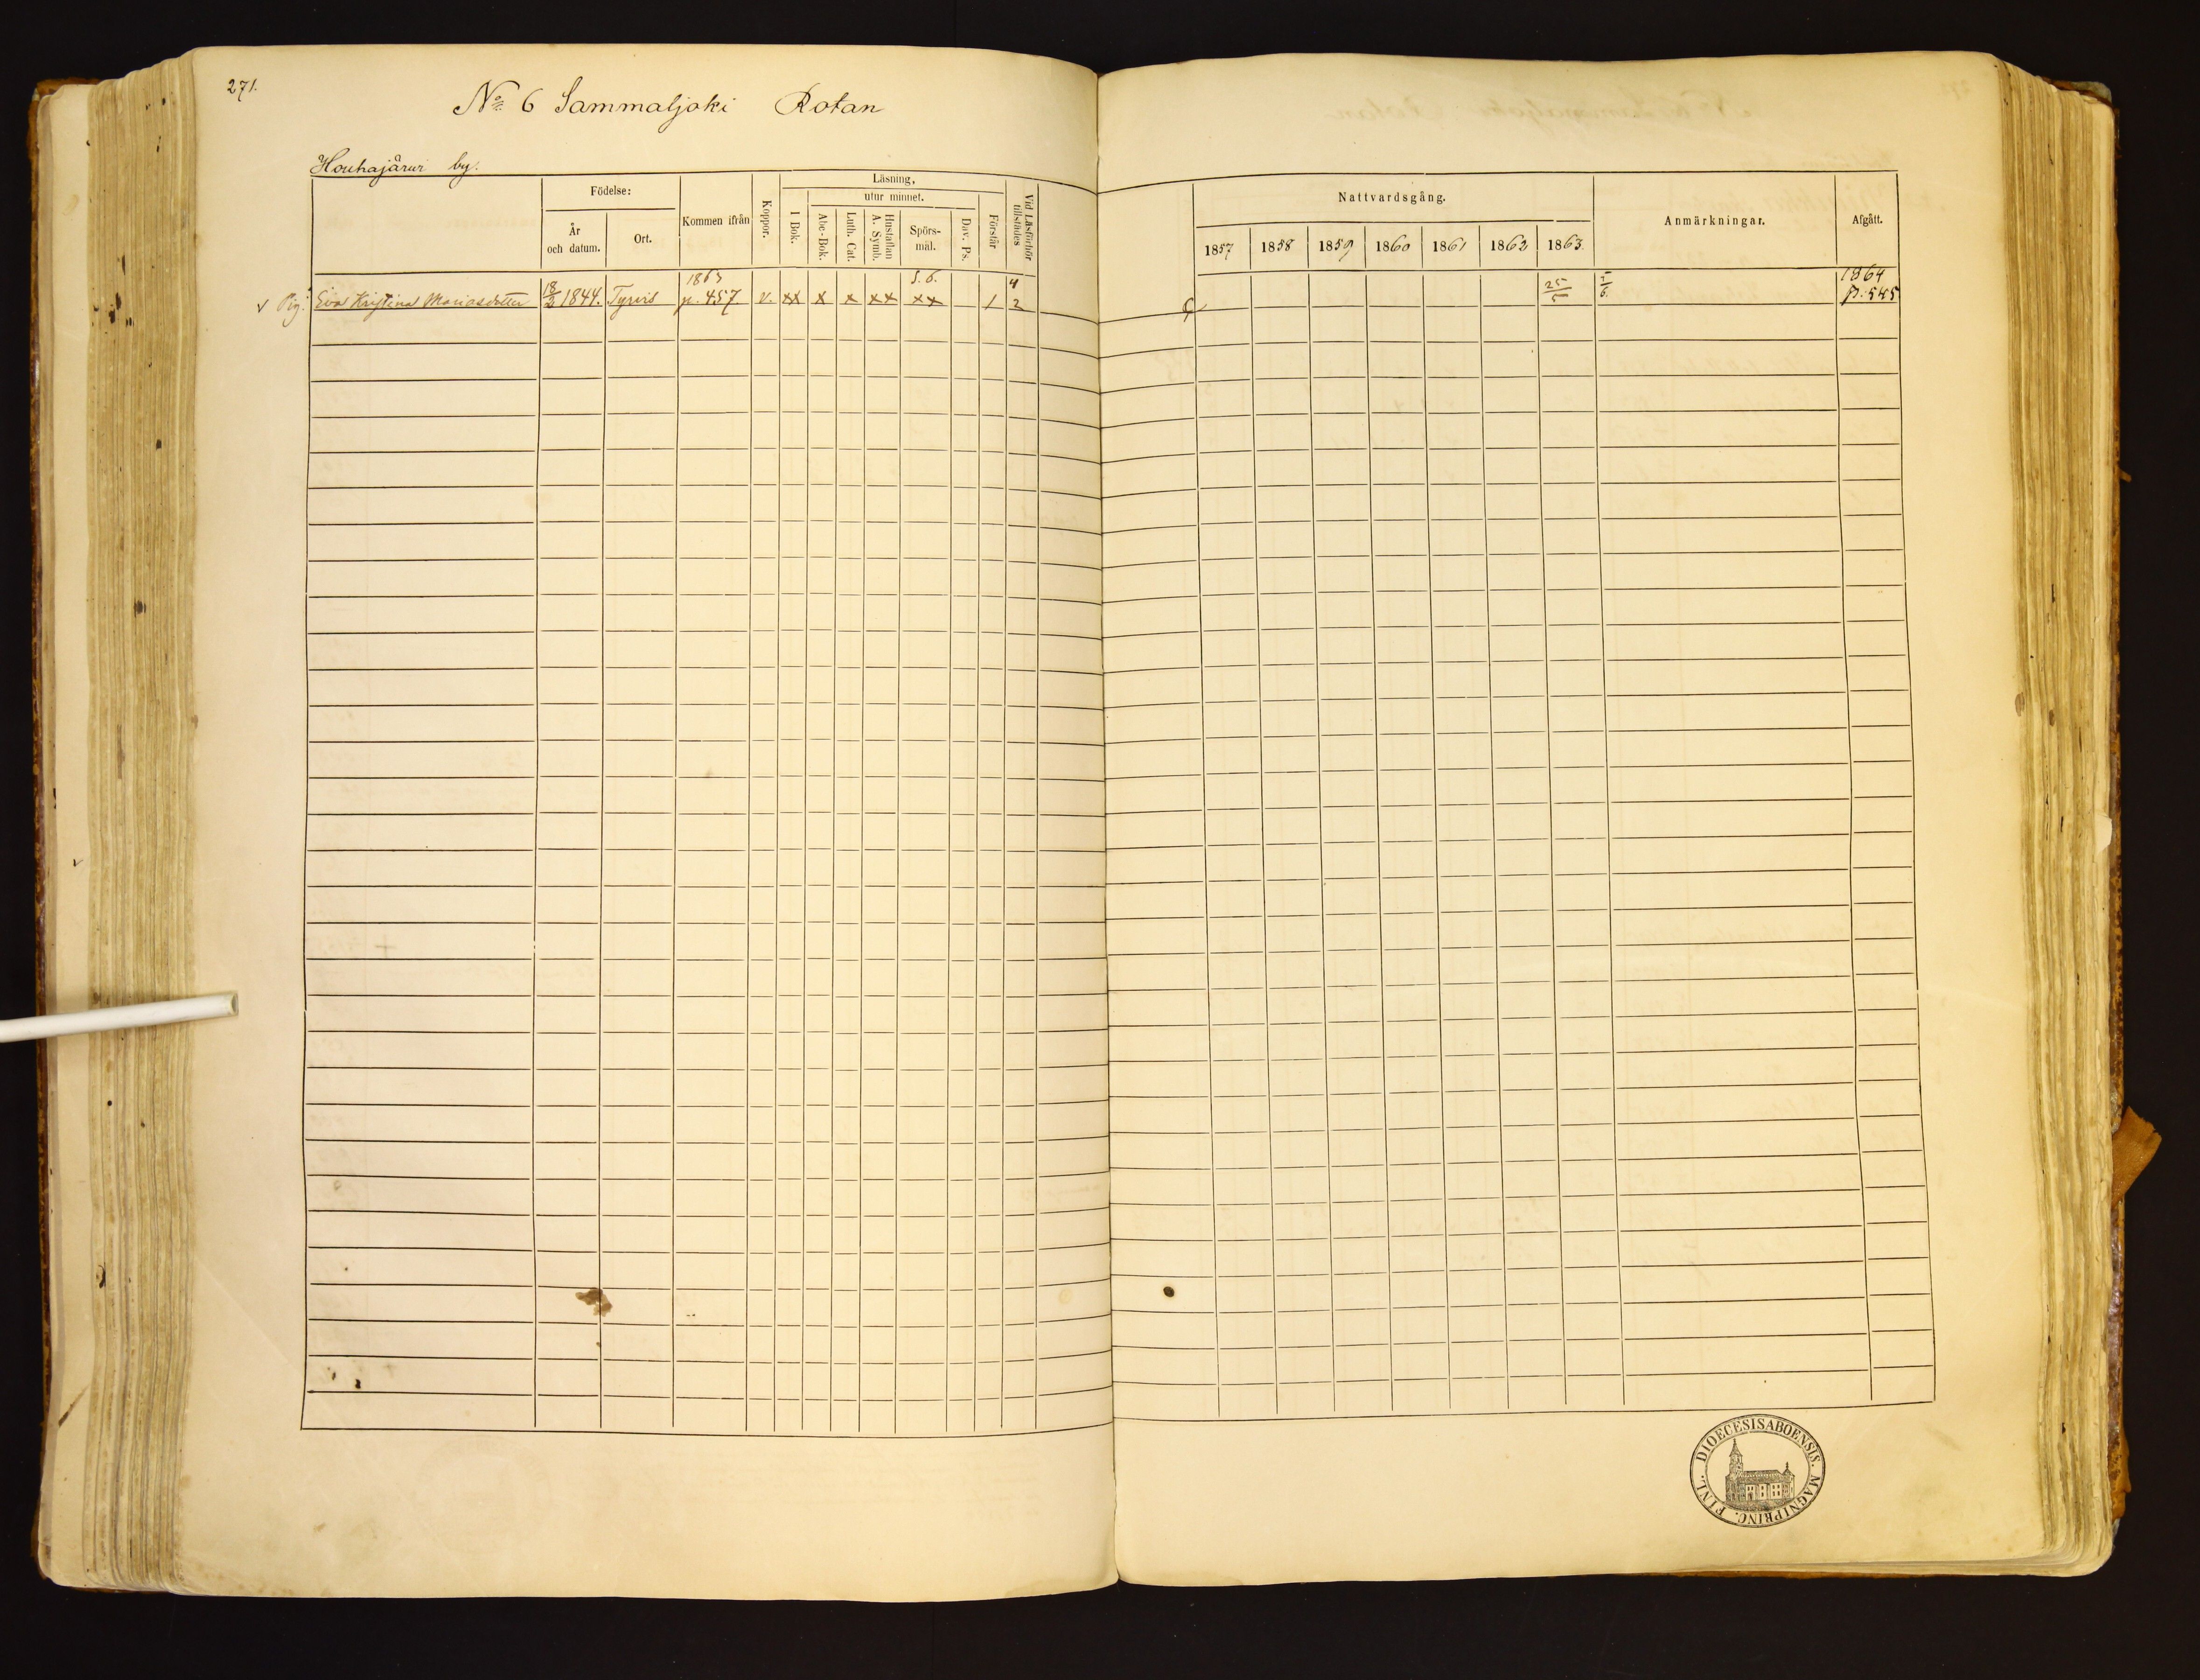 271.
No 6 Sammaljoki Rotan
Houhajärwi by.
Födelse:
År och datum.
Ort.
Kommen ifrån
Koppor.
Läsning,
I Bok.
utur minnet.
Abc-Bok.
Luth. Cat.
Hustaflan A. Symb.
Spörs-mål.
Dav. Ps.
Förstår
Vid Läsförhör tillstädes
Nattvardsgång.
1857 1858 1859 1860 1861 1862 1863.
Anmärkningar.
Afgått.
1863 S. 6. 4 1864
v Pig: Eva Kristina Mariasdotter 18/2 1844. Tyrvis p. 457 v. xx x x xx xx 1 2 25/5 5/6. p. 545
FINL. DIOECESIS ABOENSIS. MAGNI PRINC.